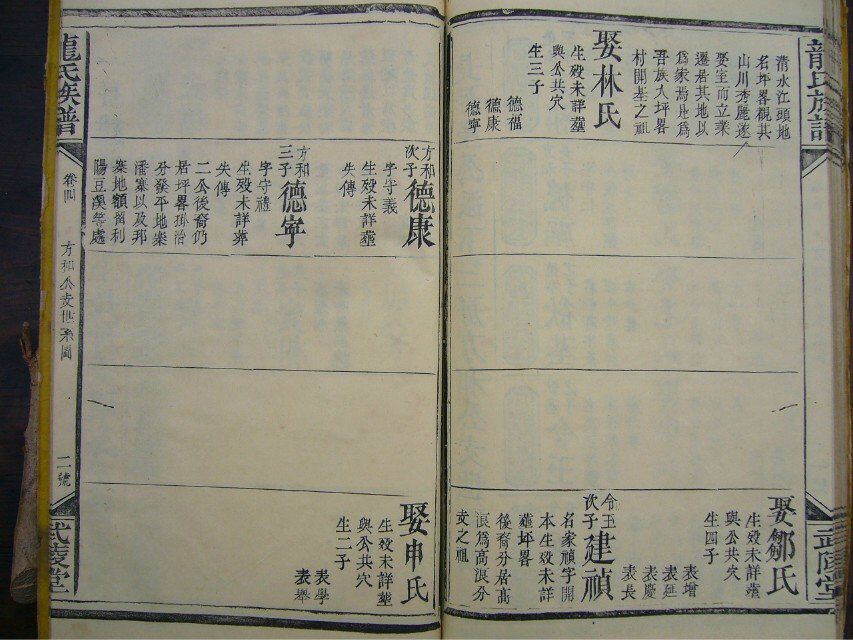 龍氏族譜
清水江頭地
名坪畧觀其
山川秀麗遂
娶室而立業
遷居其地以
為家焉此為
吾族入坪畧
村開基之祖
娶林氏
生歿未詳塟
與公共穴
生三子
德福
德康
德寧
娶鄒氏
生歿未詳塟
與公共穴
生四子
表增
表延
表慶
表長
令玉
次子
建禎
名家禎字開
本生歿未詳
塟坪畧
後裔分居高
浪為高浪分
支之祖
武陵堂
方和
次子
德康
字守義
生歿未詳塟
失傳
方和
三子
德寧
字守禮
生歿未詳葬
失傳
二公後裔仍
居坪畧掛治
分發平地寨
潘寨以及邦
寨地額留利
陽豆溪等處
娶申氏
生歿未詳塟
與公共穴
生二子
表學
表舉
龍氏族譜
卷四
方和公支世系圖
二號
武陵堂